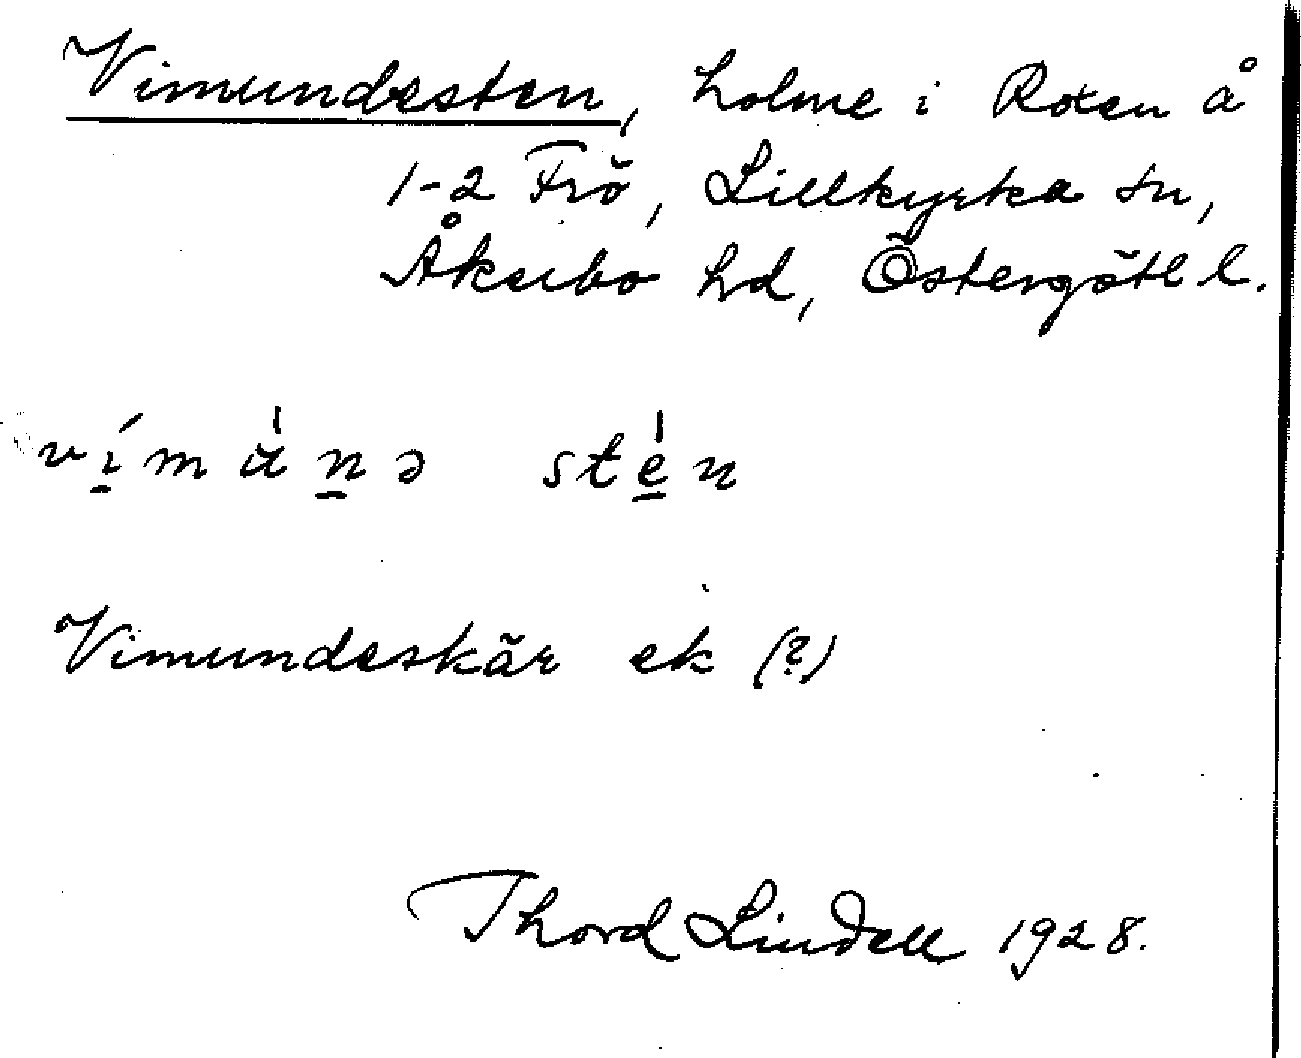 Vimundesten, holme i Roxen å
1-2 Frö, Lillkyrka sn,
Åkerbo hd, Östergötl l.
vímùnə stén
Vimundeskär ek (?)
Thord Lindell 1928.